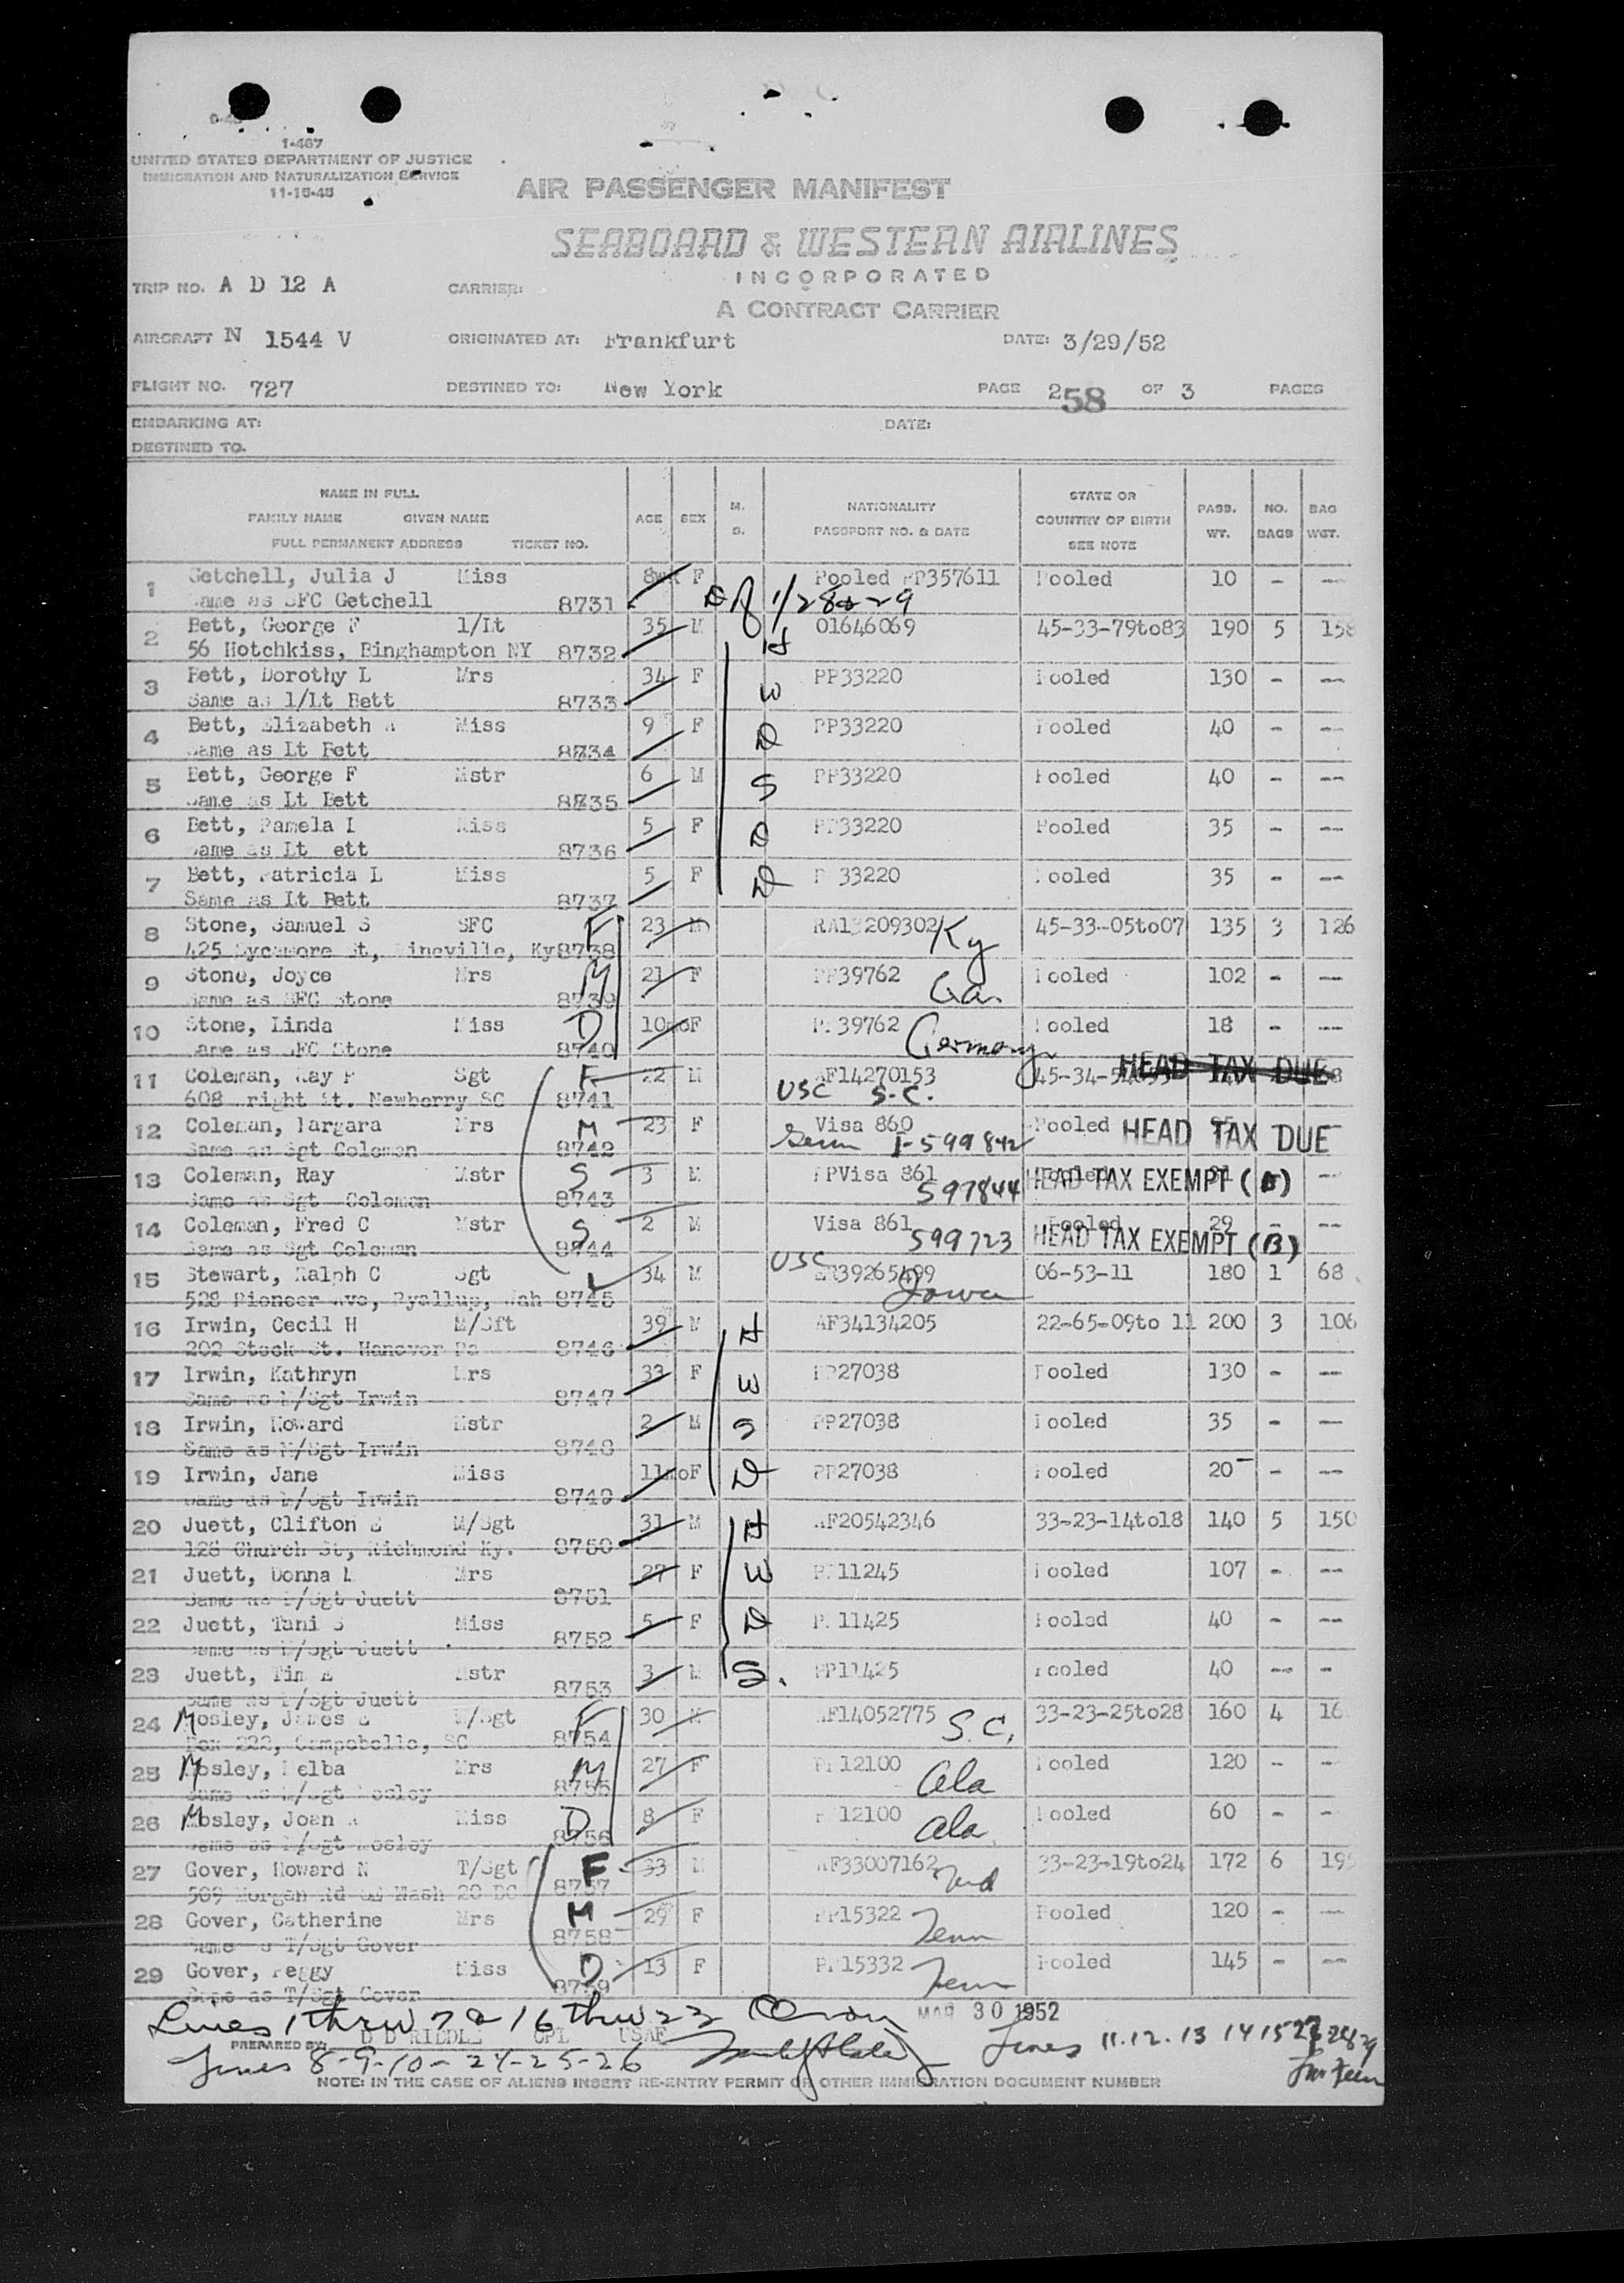 1-467
UNITED STATES DEPARTMENT OF JUSTICE
IMMIGRATION AND NATURALIZATION SERVICE
11-15-45
AIR PASSENGER MANIFEST
SEABOARD & WESTERN AIRLINES
INCORPORATED
A CONTRACT CARRIER
TRIP NO. A D 12 A CARRIER:
AIRCRAFT N 1544 V ORIGINATED AT: Frankfurt DATE: 3/29/52
FLIGHT NO. 727 DESTINED TO: New York PAGE 2 58 OF 3 PAGES
EMBARKING AT: DATE:
DESTINED TO.
NAME IN FULL
FAMILY NAME GIVEN NAME
FULL PERMANENT ADDRESS TICKET NO.
AGE SEX M. S.
NATIONALITY
PASSPORT NO. & DATE
STATE OR
COUNTRY OF BIRTH
SEE NOTE
PASS. WT. NO. BAGS BAG WGT.
1 Getchell, Julia J Miss F Pooled PP357611 Pooled 10 - --
Same as SFC Getchell 8731
2 Bett, George F 1/Lt 35 M H 01646069 45-33-79to83 190 5 158
56 Hotchkiss, Binghampton NY 8732
3 Bett, Dorothy L Mrs 34 F W PP33220 Pooled 130 - --
Same as 1/Lt Bett 8733
4 Bett, Elizabeth A Miss 9 F D PP33220 Pooled 40 - --
Same as Lt Bett 8734
5 Bett, George F Mstr 6 M S PP33220 Pooled 40 - --
Same as Lt Bett 8735
6 Bett, Pamela L Miss 5 F D PP33220 Pooled 35 - --
Same as Lt ett 8736
7 Bett, Patricia L Miss 5 F D P 33220 Pooled 35 - --
Same as Lt Bett 8737
8 Stone, Samuel S SFC F 23 M RA13209302 Ky 45-33-05to07 135 3 126
425 Sycamore St, Pineville, Ky 8738
9 Stone, Joyce Mrs M 21 F PP39762 Ga. Pooled 102 - --
Same as SFC Stone 8739
10 Stone, Linda Miss D 10mo F PP39762 Germany Pooled 18 - --
Same as SFC Stone 8740
11 Coleman, Ray F Sgt F 22 M AF14270153 HEAD TAX DUE
608 Wright St. Newberry SC 8741 USC S.C.
12 Coleman, Bargara Mrs M 23 F Visa 860 Pooled HEAD TAX DUE
Same as Sgt Coleman 8742 Germ I-599842
13 Coleman, Ray Mstr S 3 M PPVisa 861 597844 HEAD TAX EXEMPT (B) --
Same as Sgt Coleman 8743
14 Coleman, Fred C Mstr S 2 M Visa 861 599723 Pooled 29 - -- HEAD TAX EXEMPT (B)
Same as Sgt Coleman 8744
15 Stewart, Ralph C Sgt 34 M USC ER39265499 Iowa 06-53-11 180 1 68
528 Pioneer Ave, Pyallup, Wah 8745
16 Irwin, Cecil H M/Sft 39 M H AF34134205 22-65-09to 11 200 3 106
202 Stock St. Hanover Pa 8746
17 Irwin, Kathryn Mrs 33 F W PP27038 Pooled 130 - --
Same as M/Sgt Irwin 8747
18 Irwin, Howard Mstr 2 M S PP27038 Pooled 35 - --
Same as M/Sgt Irwin 8748
19 Irwin, Jane Miss 11mo F D PP27038 Pooled 20 - --
Same as M/Sgt Irwin 8749
20 Juett, Clifton E M/Sgt 31 M H AF20542346 33-23-14to18 140 5 150
128 Church St, Richmond Ky. 8750
21 Juett, Donna L Mrs 27 F W PP11245 Pooled 107 - --
Same as M/Sgt Juett 8751
22 Juett, Tani S Miss 5 F D PP 11425 Pooled 40 - --
Same as M/Sgt Juett 8752
23 Juett, Tim E Mstr 3 M S. PP11425 Pooled 40 -- -
Same as M/Sgt Juett 8753
24 Mosley, James E M/Sgt F 30 M AF14052775 S.C. 33-23-25to28 160 4 16
Box 222, Campobello, SC 8754
25 Mosley, Melba Mrs M 27 F PP12100 Ala Pooled 120 - --
Same as M/Sgt Mosley 8755
26 Mosley, Joan Miss D 8 F P 12100 Ala Pooled 60 - -
Same as M/Sgt Mosley 8756
27 Gover, Howard N T/Sgt F 33 M AF33007162 33-23-19to24 172 6 195
509 Morgan Rd SE Wash 20 DC 8757
28 Gover, Catherine Mrs M 29 F PP15322 Tenn Pooled 120 - --
Same as T/Sgt Gover 8758
29 Gover, Peggy Miss D 13 F PP15332 Tenn Pooled 145 - --
Same as T/Sgt Gover 8759
Lines 1 thru 7 & 16 thru 23 MAR 30 1952
PREPARED BY: D D RIDDLE CPL USAF
Lines 8-9-10-24-25-26 Lines 11.12.13 14 15 27 28 29
NOTE: IN THE CASE OF ALIENS INSERT RE-ENTRY PERMIT OR OTHER IMMIGRATION DOCUMENT NUMBER